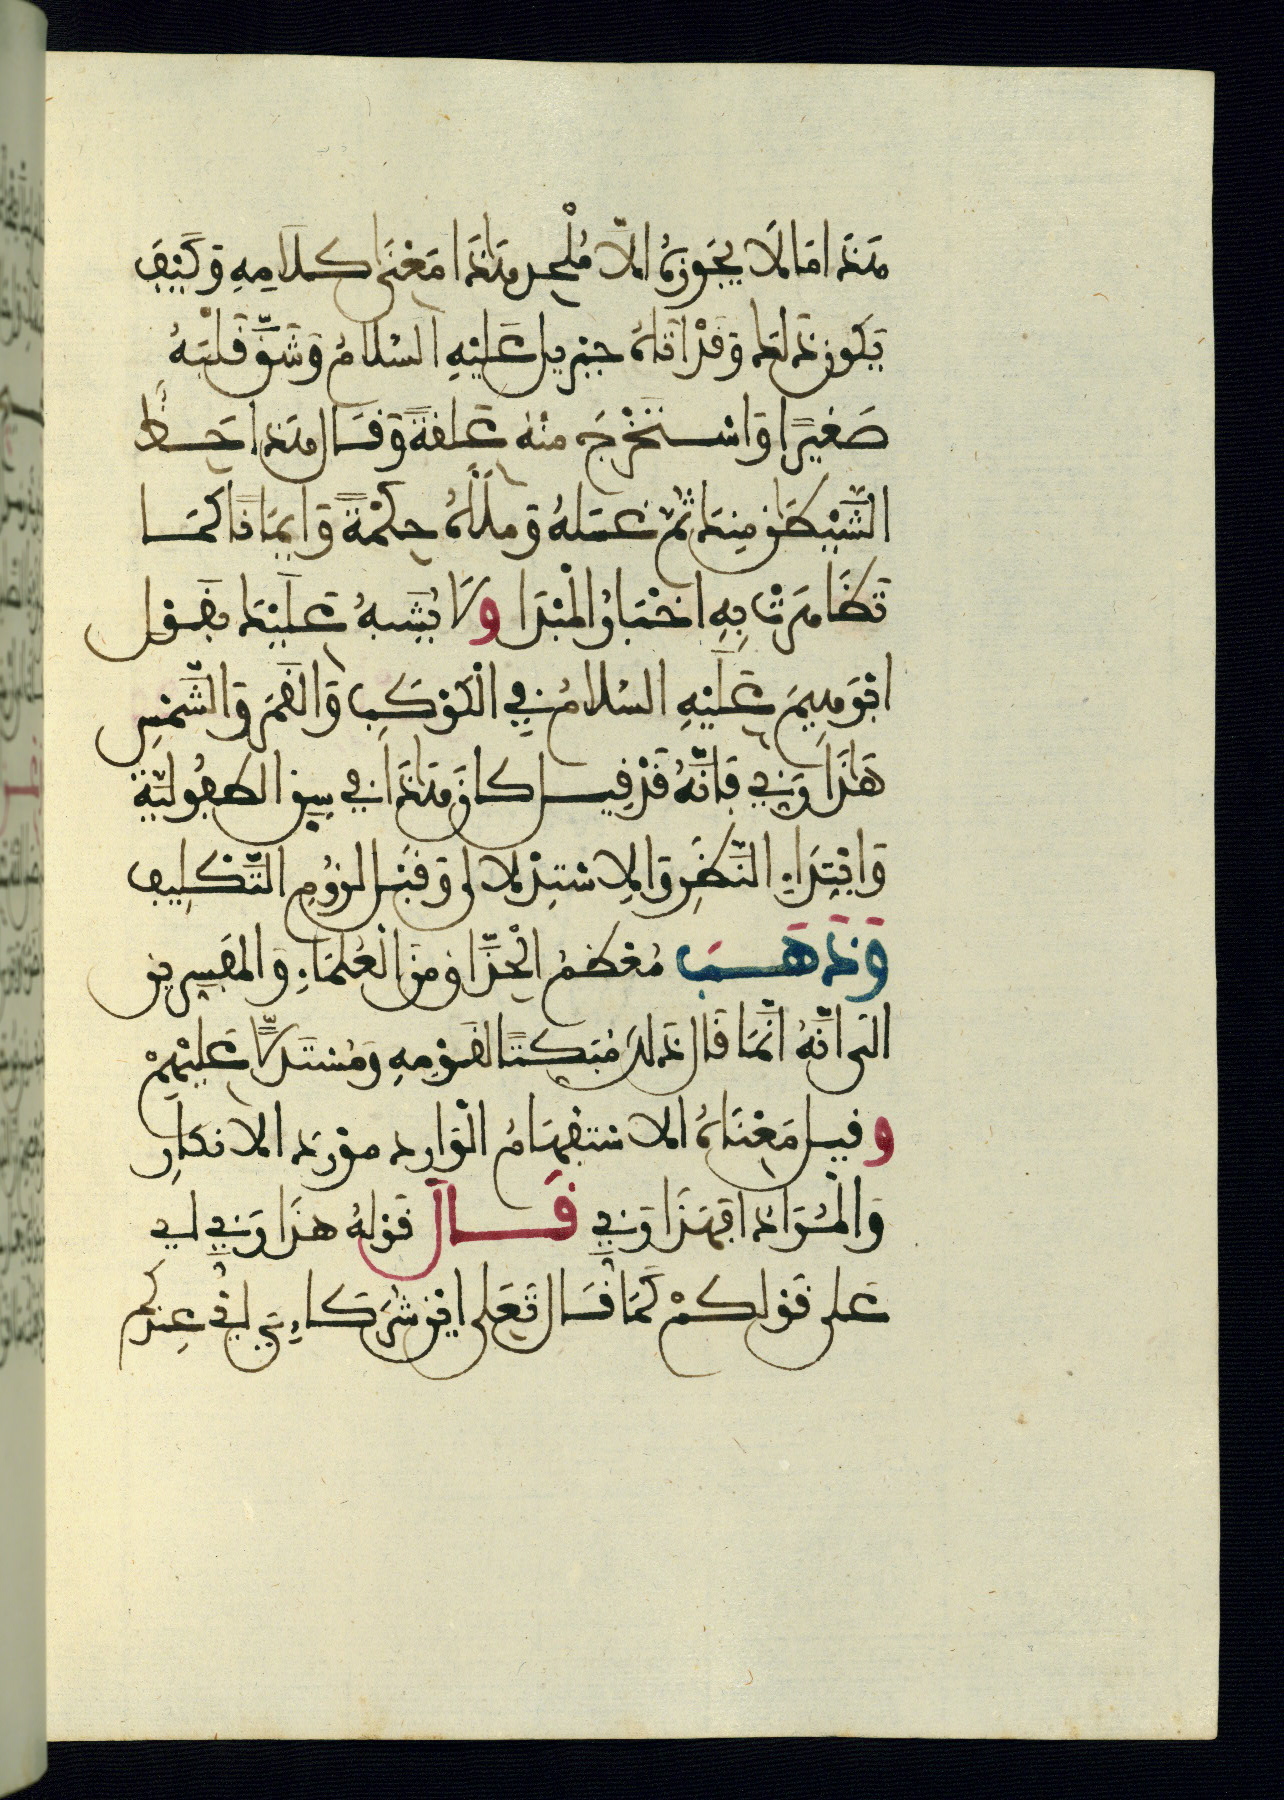 هذا ما لا يجوزه الا ملحد هذا معنى كلامه وكيف
يكون ذلك وقد اتاه جبريل عليه السلام وشق قلبه
صغيرا واستخرج منه علقة وقال هذا حظ
الشيطان منك ثم غسله وملاه حكمة وايمانا كما
تظاهرت به اخبار المبدا ولا يشبه عليك بقول
ابرهيم عليه السلام في الكوكب والقمر والشمس
هاذا ربي فانه قد قيل كان هذا في سن الطفولية
وابتداء النظر والاستدلال وقبل لزوم التكليف
وذهب معظم الحذاق من العلماء والمفسرين
الى انه انما قال ذلك مبكتا لقومه ومستدلا عليهم
وقيل معناه الاستفهام الوارد مورد الانكار
والمراد افهذا ربي قال قوله هذا ربي اي
على قولكم كما قال تعلى اين شركاءي اي عندكم